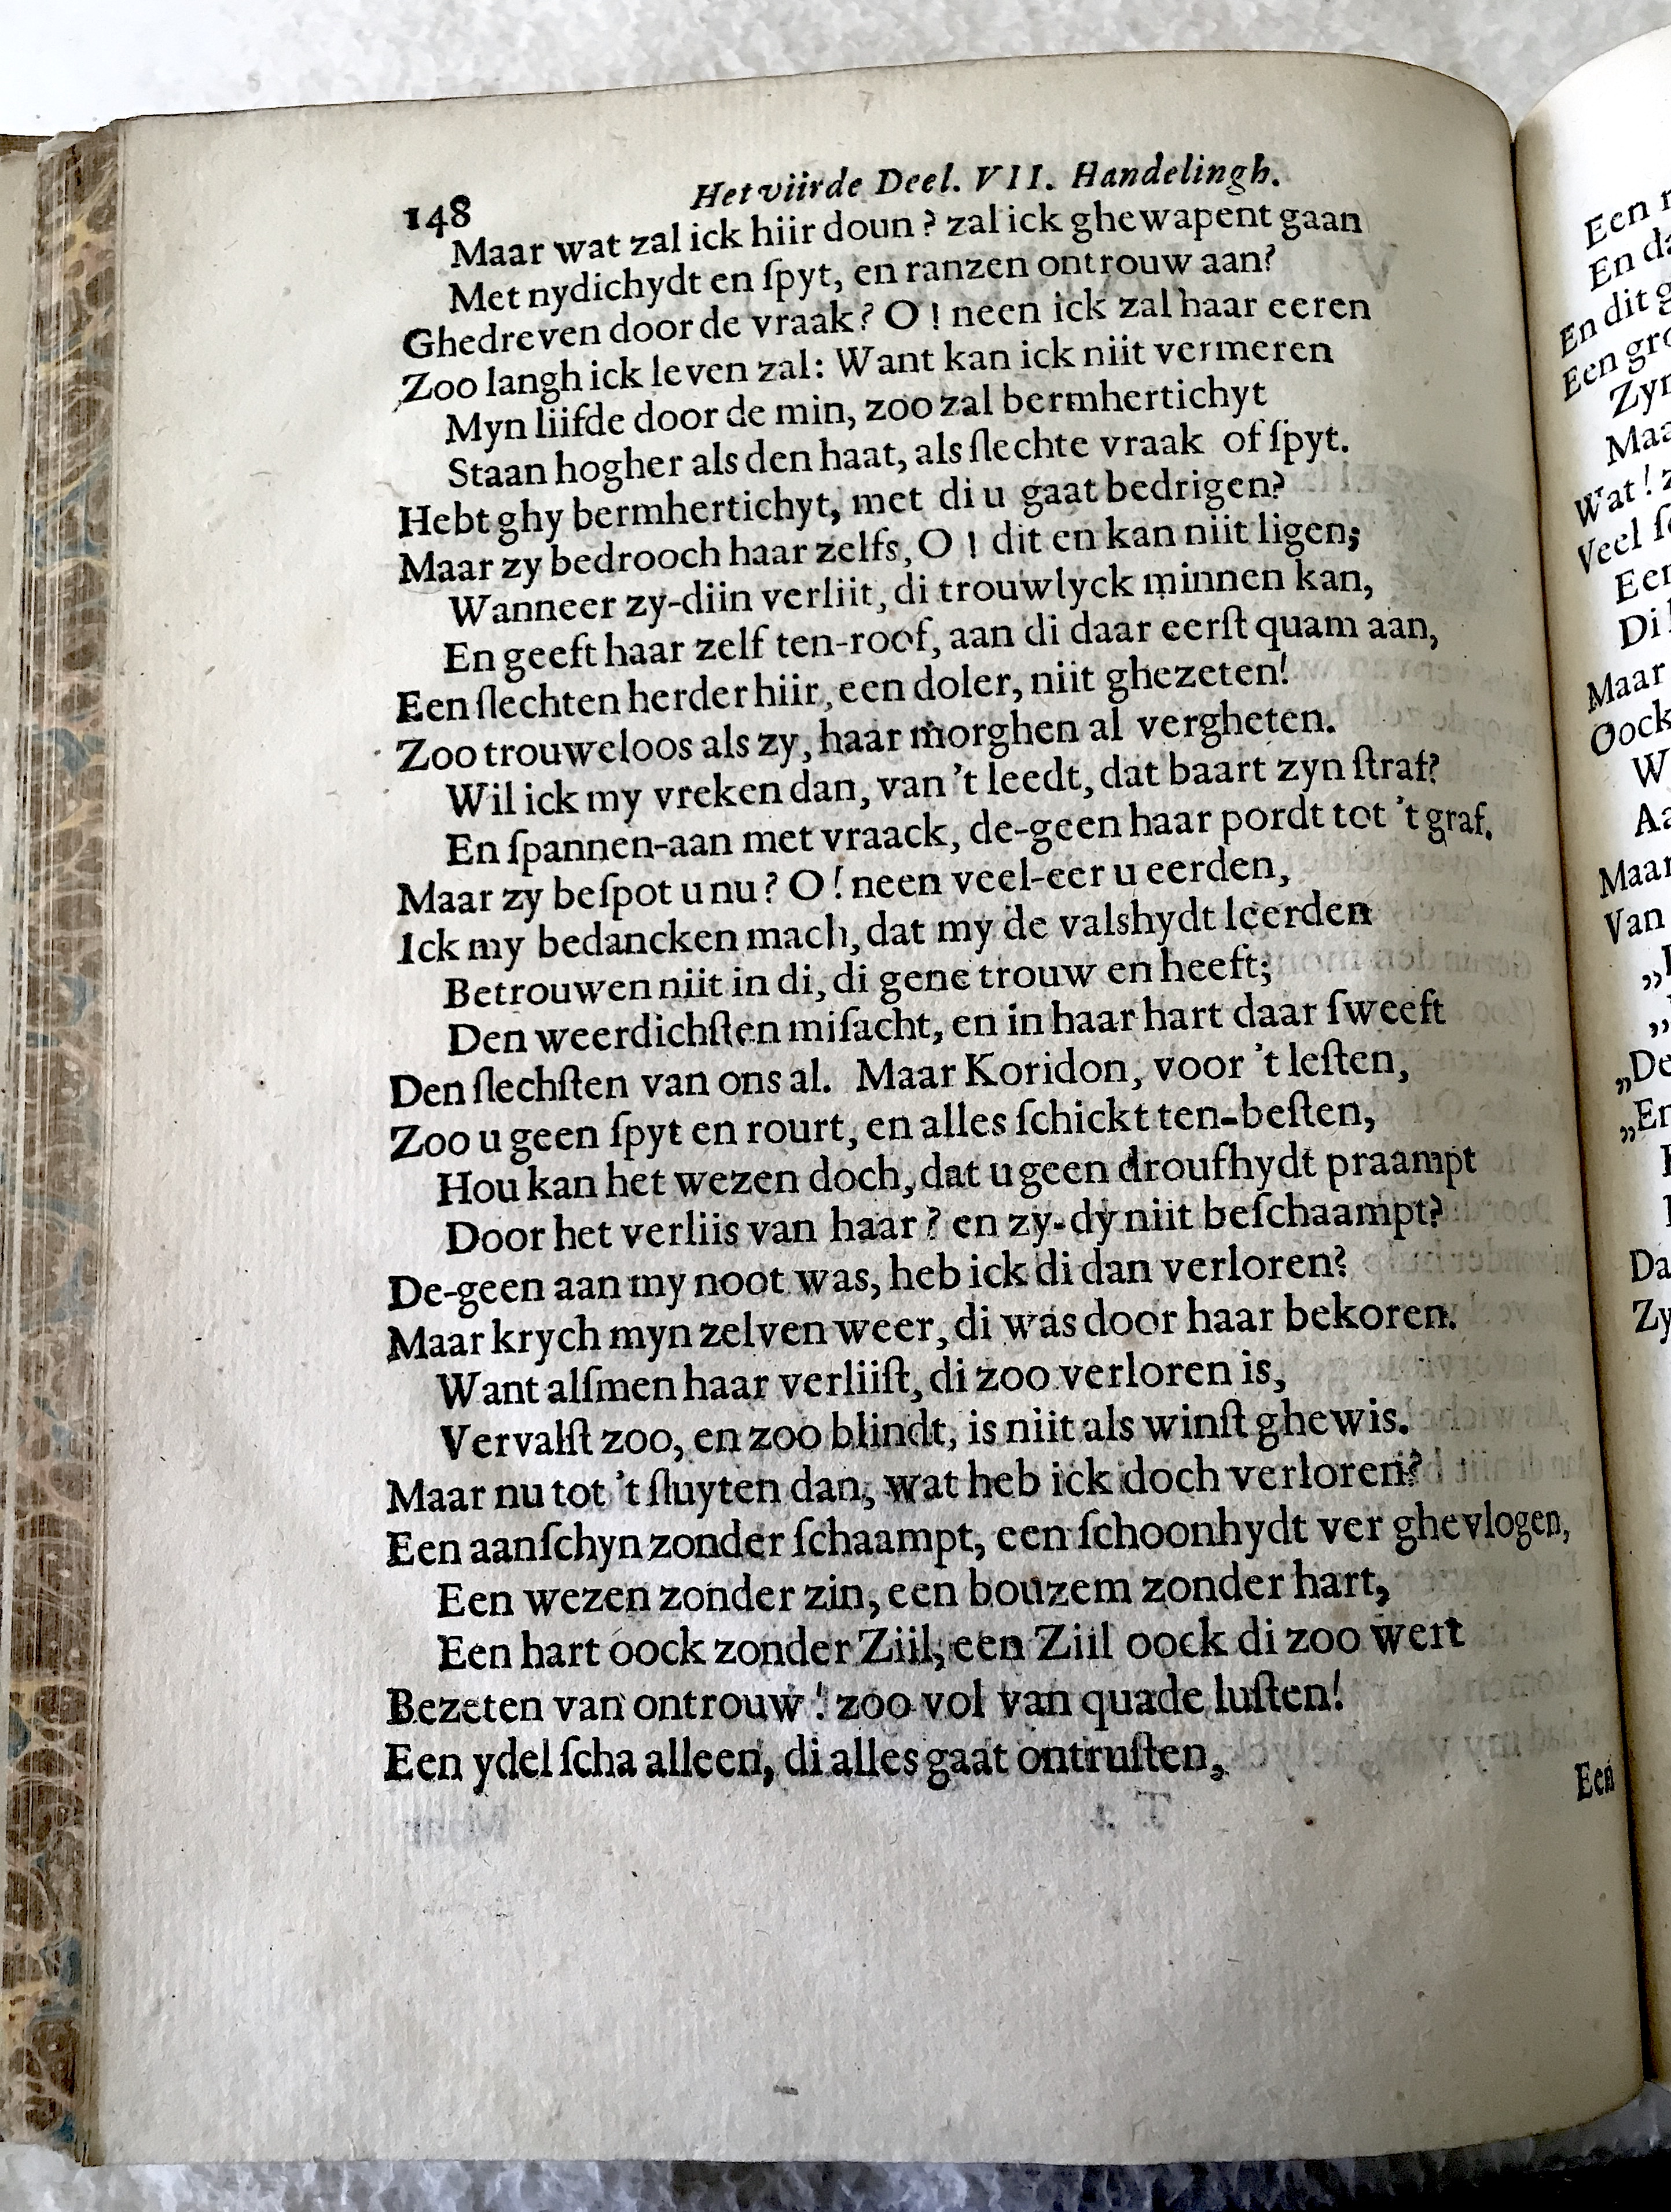 148 Het viirde Deel. VII. Handelingh.
Maar wat zal ick hiir doun? zal ick ghewapent gaan
Met nydichydt en ſpyt, en ranzen ontrouw aan?
Ghedreven door de vraak? O! neen ick zal haar eeren
Zoo langh ick leven zal: Want kan ick niit vermeren
Myn liifde door de min, zoo zal bermhertichyt
Staan hogher als den haat, als ſlechte vraak of ſpyt.
Hebt ghy bermhertichyt, met di u gaat bedrigen?
Maar zy bedrooch haar zelfs, O! dit en kan niit ligen;
Wanneer zy-diin verliit, di trouwlyck minnen kan,
En geeft haar zelf ten-roof, aan di daar eerſt quam aan,
Een ſlechten herder hiir, een doler, niit ghezeten!
Zoo trouweloos als zy, haar morghen al vergheten.
Wil ick my vreken dan, van 't leedt, dat baart zyn ſtraf?
En ſpannen-aan met vraack, de-geen haar pordt tot 't graf.
Maar zy beſpot u nu? O! neen veel-eer u eerden,
Ick my bedancken mach, dat my de valshydt leerden
Betrouwen niit in di, di gene trouw en heeft;
Den weerdichſten miſacht, en in haar hart daar ſweeft
Den ſlechſten van ons al. Maar Koridon, voor 't leſten,
Zoo u geen ſpyt en rourt, en alles ſchickt ten-beſten,
Hou kan het wezen doch, dat u geen droufhydt praampt
Door het verliis van haar? en zy-dy niit beſchaampt?
De-geen aan my noot was, heb ick di dan verloren?
Maar krych myn zelven weer, di was door haar bekoren.
Want alſmen haar verliiſt, di zoo verloren is,
Vervalſt zoo, en zoo blindt, is niit als winſt ghewis.
Maar nu tot 't ſluyten dan, wat heb ick doch verloren?
Een aanſchyn zonder ſchaampt, een ſchoonhydt ver ghevlogen,
Een wezen zonder zin, een bouzem zonder hart,
Een hart oock zonder Ziil, een Ziil oock di zoo wert
Bezeten van ontrouw! zoo vol van quade luſten!
Een ydel ſcha alleen, di alles gaat ontruſten,
Een
En
En dit
Een
Maa
Wat!
Veel
Di
Maar
Oock
W
Aa
Maar
Van
„De
„En
Da
Zy
Een